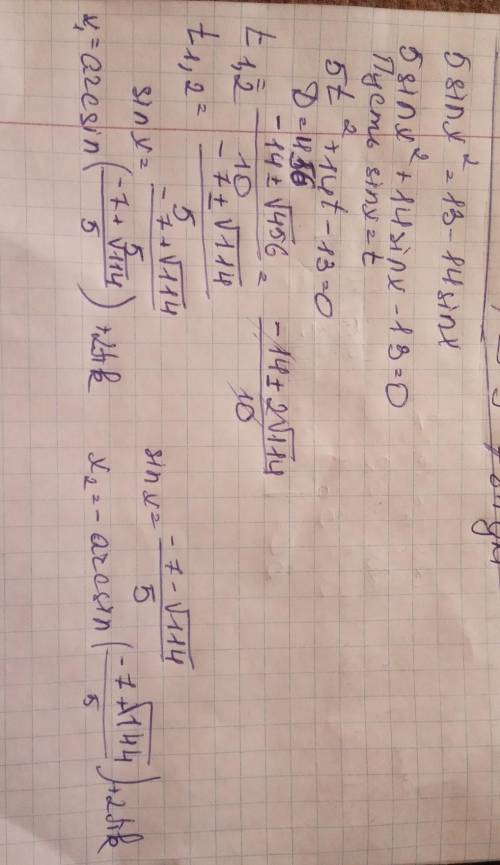 5 sin x² = 13 - 14 sin x
5 sin x² + 14 sin x - 13 = 0
Пусть sin x = t
5t² + 14t - 13 = 0
D = 456
t₁,₂ = (-14 ± √456)/10 = (-14 ± 2√114)/10
t₁,₂ = (-7 ± √114)/5
sin x = (-7 + √114)/5
x₁ = arcsin((-7 + √114)/5) + 2πk
sin x = (-7 - √114)/5
x₂ = - arcsin((-7 + √144)/5) + 2πk